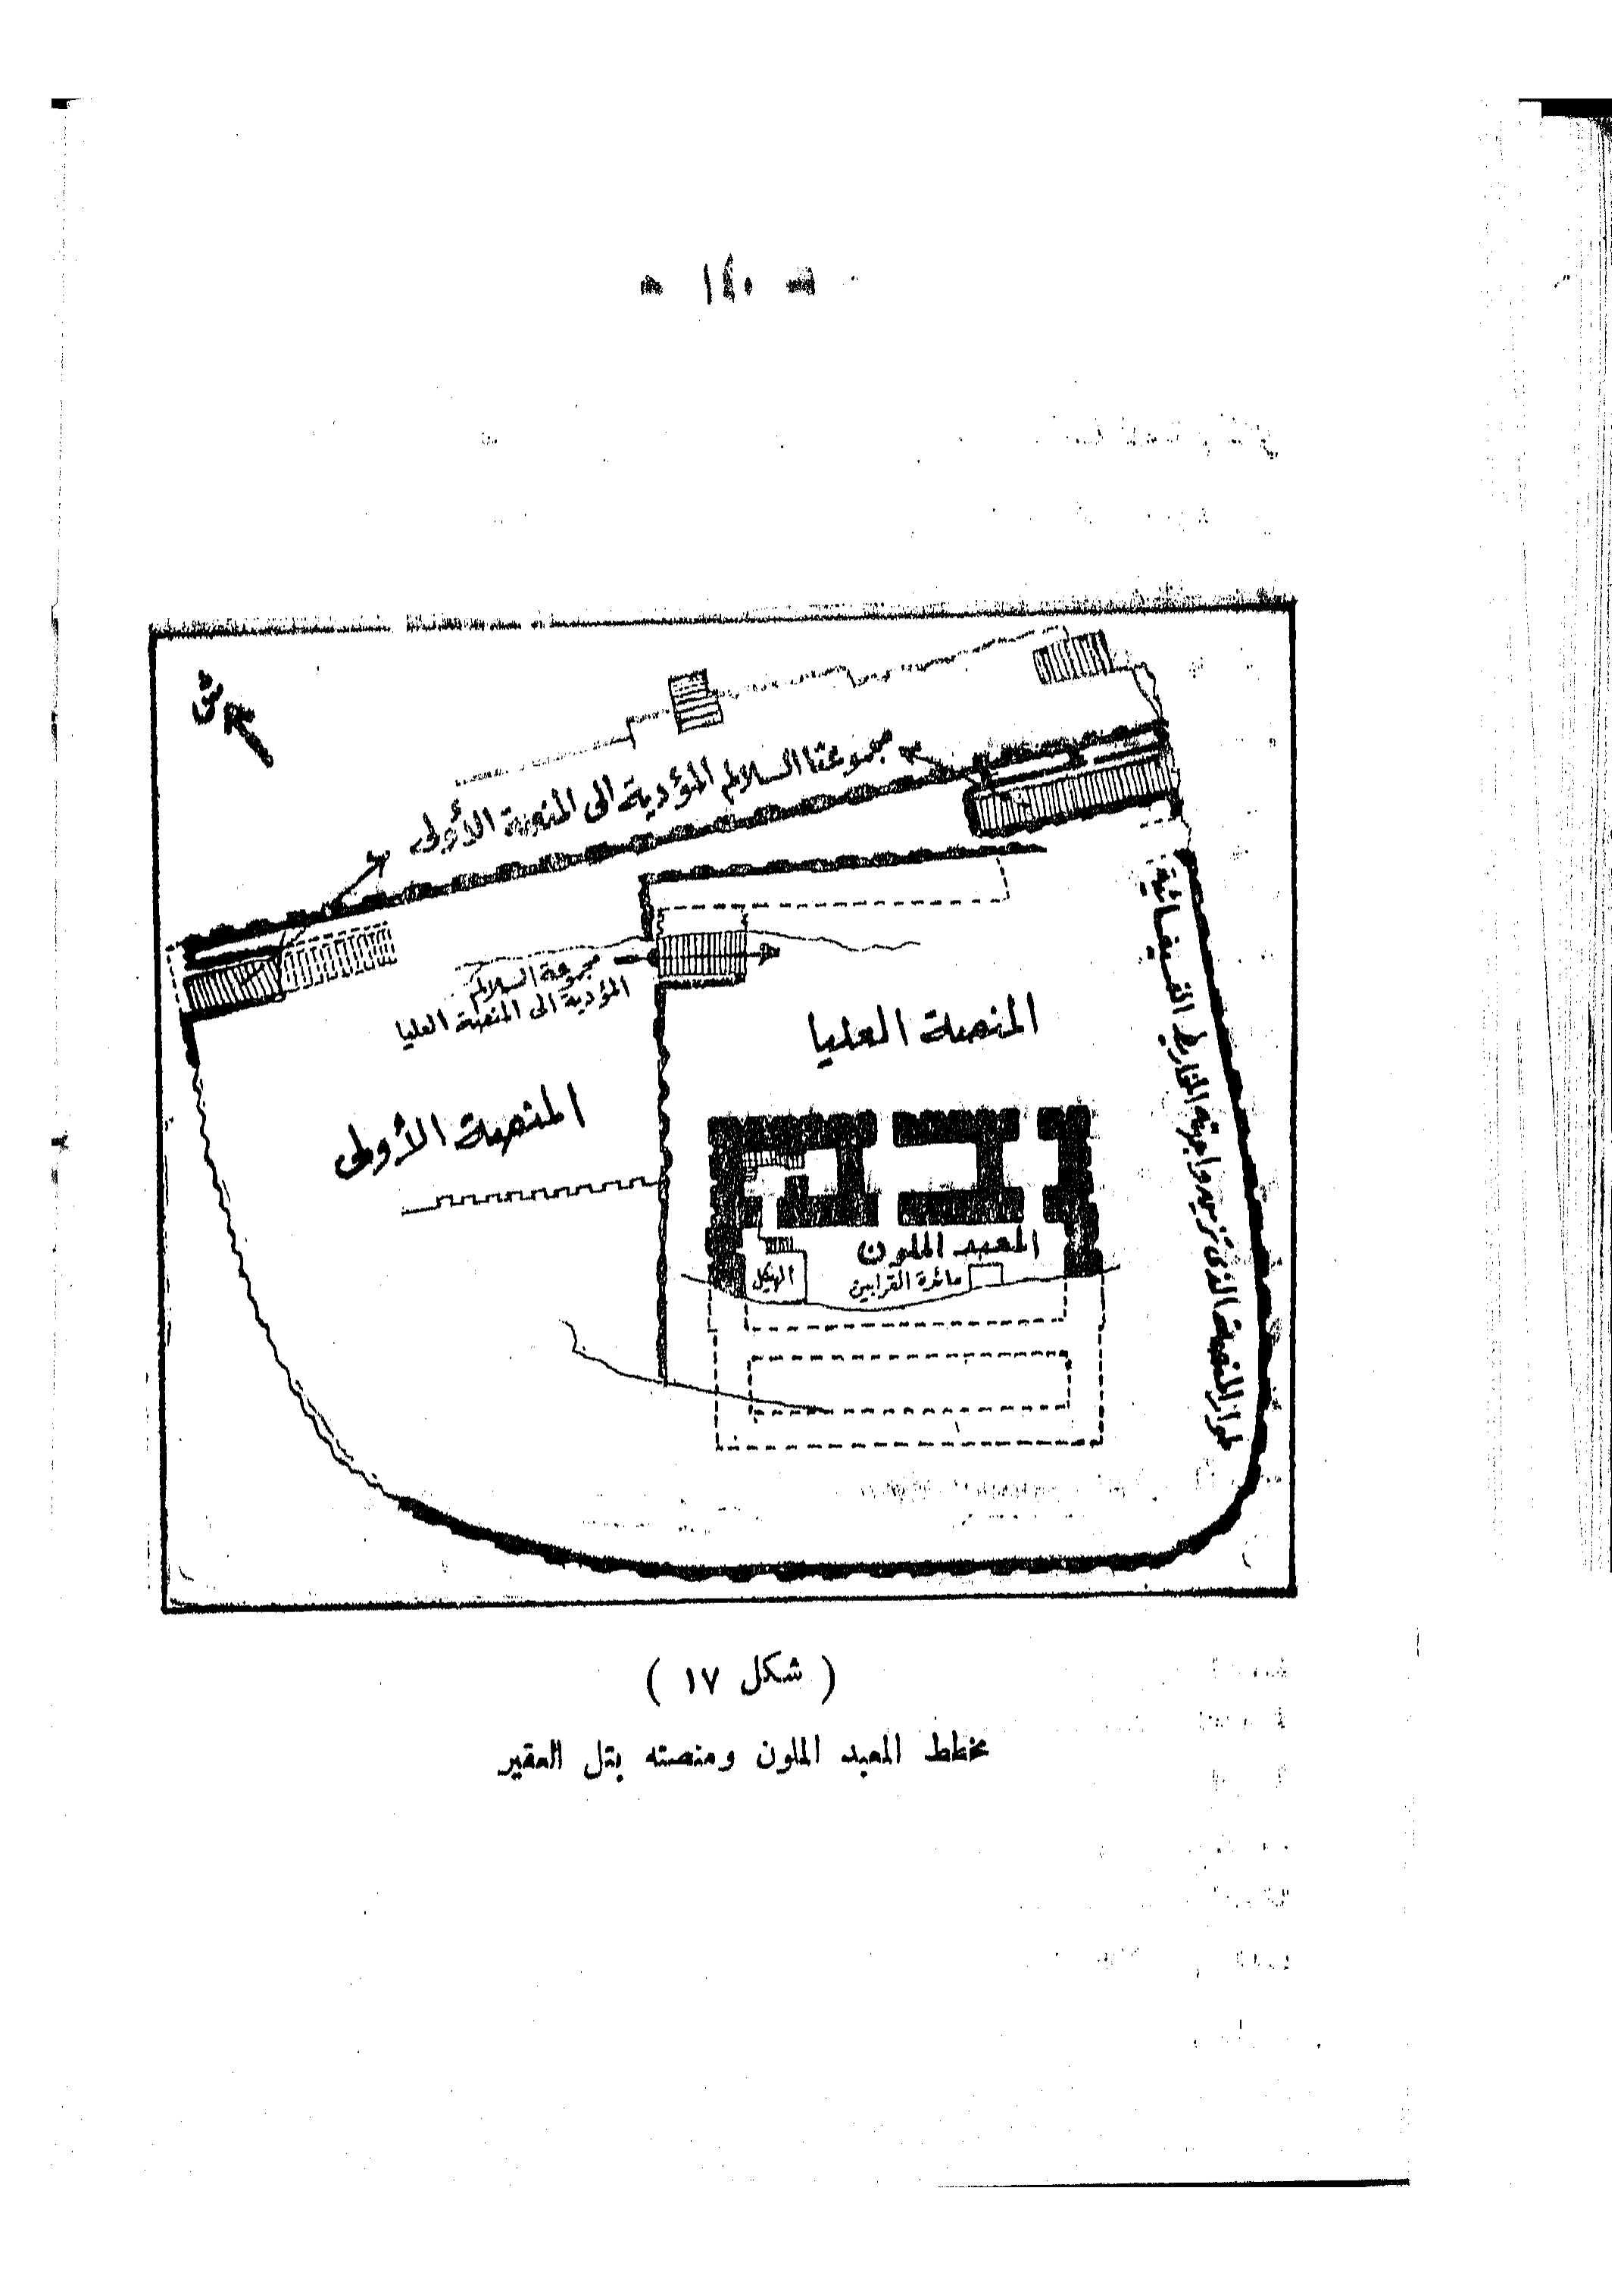 - ١٤٠ -
ش
مجموعتا السلالم المؤدية الى المنصة الأولى
مجموعة السلالم
المؤدية الى المنصة العليا
المنصة العليا
المنصة الأولى
المعبد الملون
مائدة القرابين
الهيكل
( شكل ١٧ )
مخطط المعبد الملون ومنصته بتل العقير